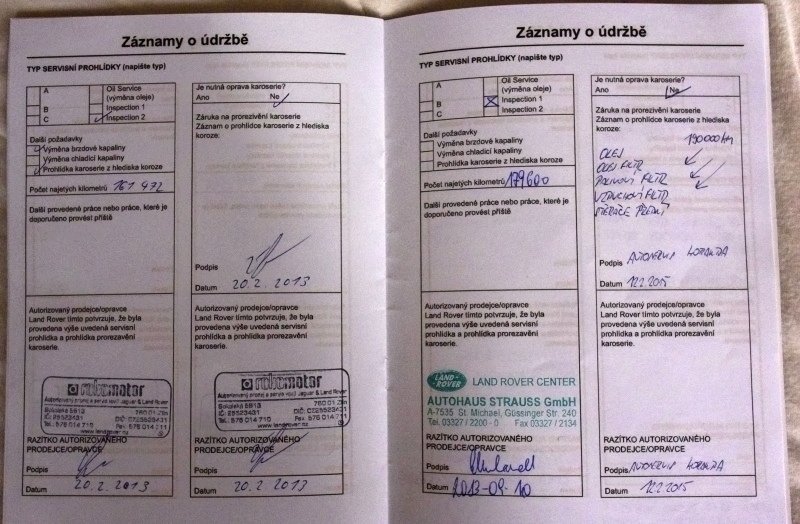 Záznamy o údržbě
TYP SERVISNÍ PROHLÍDKY (napište typ)
A
B
C
Oil Service
(výměna oleje)
Inspection 1
Inspection 2
Další požadavky
Výměna brzdové kapaliny
Výměna chladicí kapaliny
Prohlídka karoserie z hlediska koroze
Počet najetých kilometrů 161 472
Další provedené práce nebo práce, které je
doporučeno provést příště
Autorizovaný prodejce/opravce
Land Rover tímto potvrzuje, že byla
provedena výše uvedená servisní
prohlídka a prohlídka prorezavění
karoserie.
robomotor
Autorizovaný prodej a servis vozů Jaguar & Land Rover
Sokolská 5913
760 01 Zlín
www.landrover.nz
RAZÍTKO AUTORIZOVANÉHO
PRODEJCE/OPRAVCE
Podpis
Datum 20.2.2013
Je nutná oprava karoserie?
Ano Ne
Záruka na prorezivění karoserie
Záznam o prohlídce karoserie z hlediska
koroze:
Podpis
Datum 20.2.2013
Autorizovaný prodejce/opravce
Land Rover tímto potvrzuje, že byla
provedena výše uvedená servisní
prohlídka a prohlídka prorezavění
karoserie.
robomotor
Autorizovaný prodej a servis vozů Jaguar & Land Rover
Sokolská 5913
760 01 Zlín
www.landrover.nz
RAZÍTKO AUTORIZOVANÉHO
PRODEJCE/OPRAVCE
Podpis
Datum 20.2.2013
Záznamy o údržbě
TYP SERVISNÍ PROHLÍDKY (napište typ)
A
B
C
Oil Service
(výměna oleje)
Inspection 1
Inspection 2
Další požadavky
Výměna brzdové kapaliny
Výměna chladicí kapaliny
Prohlídka karoserie z hlediska koroze
Počet najetých kilometrů 179600
Další provedené práce nebo práce, které je
doporučeno provést příště
Autorizovaný prodejce/opravce
Land Rover tímto potvrzuje, že byla
provedena výše uvedená servisní
prohlídka a prohlídka prorezavění
karoserie.
LAND-
ROVER
LAND ROVER CENTER
AUTOHAUS STRAUSS GmbH
A-7535 St. Michael, Güssinger Str. 240
Tel. 03327 / 2200 - 0 Fax 03327 / 2134
RAZÍTKO AUTORIZOVANÉHO
PRODEJCE/OPRAVCE
Podpis
Datum 2013-09-10
Je nutná oprava karoserie?
Ano Ne
Záruka na prorezivění karoserie
Záznam o prohlídce karoserie z hlediska
koroze:
190000 km
OLEJ
OLEJ FILTR
PALIVOVÝ FILTR
VZDUCHOVÝ FILTR
STĚRAČE PŘEDNÍ
Podpis AUTOSERVIS
Datum 12.2.2015
Autorizovaný prodejce/opravce
Land Rover tímto potvrzuje, že byla
provedena výše uvedená servisní
prohlídka a prohlídka prorezavění
karoserie.
RAZÍTKO AUTORIZOVANÉHO
PRODEJCE/OPRAVCE
Podpis AUTOSERVIS
Datum 12.2.2015